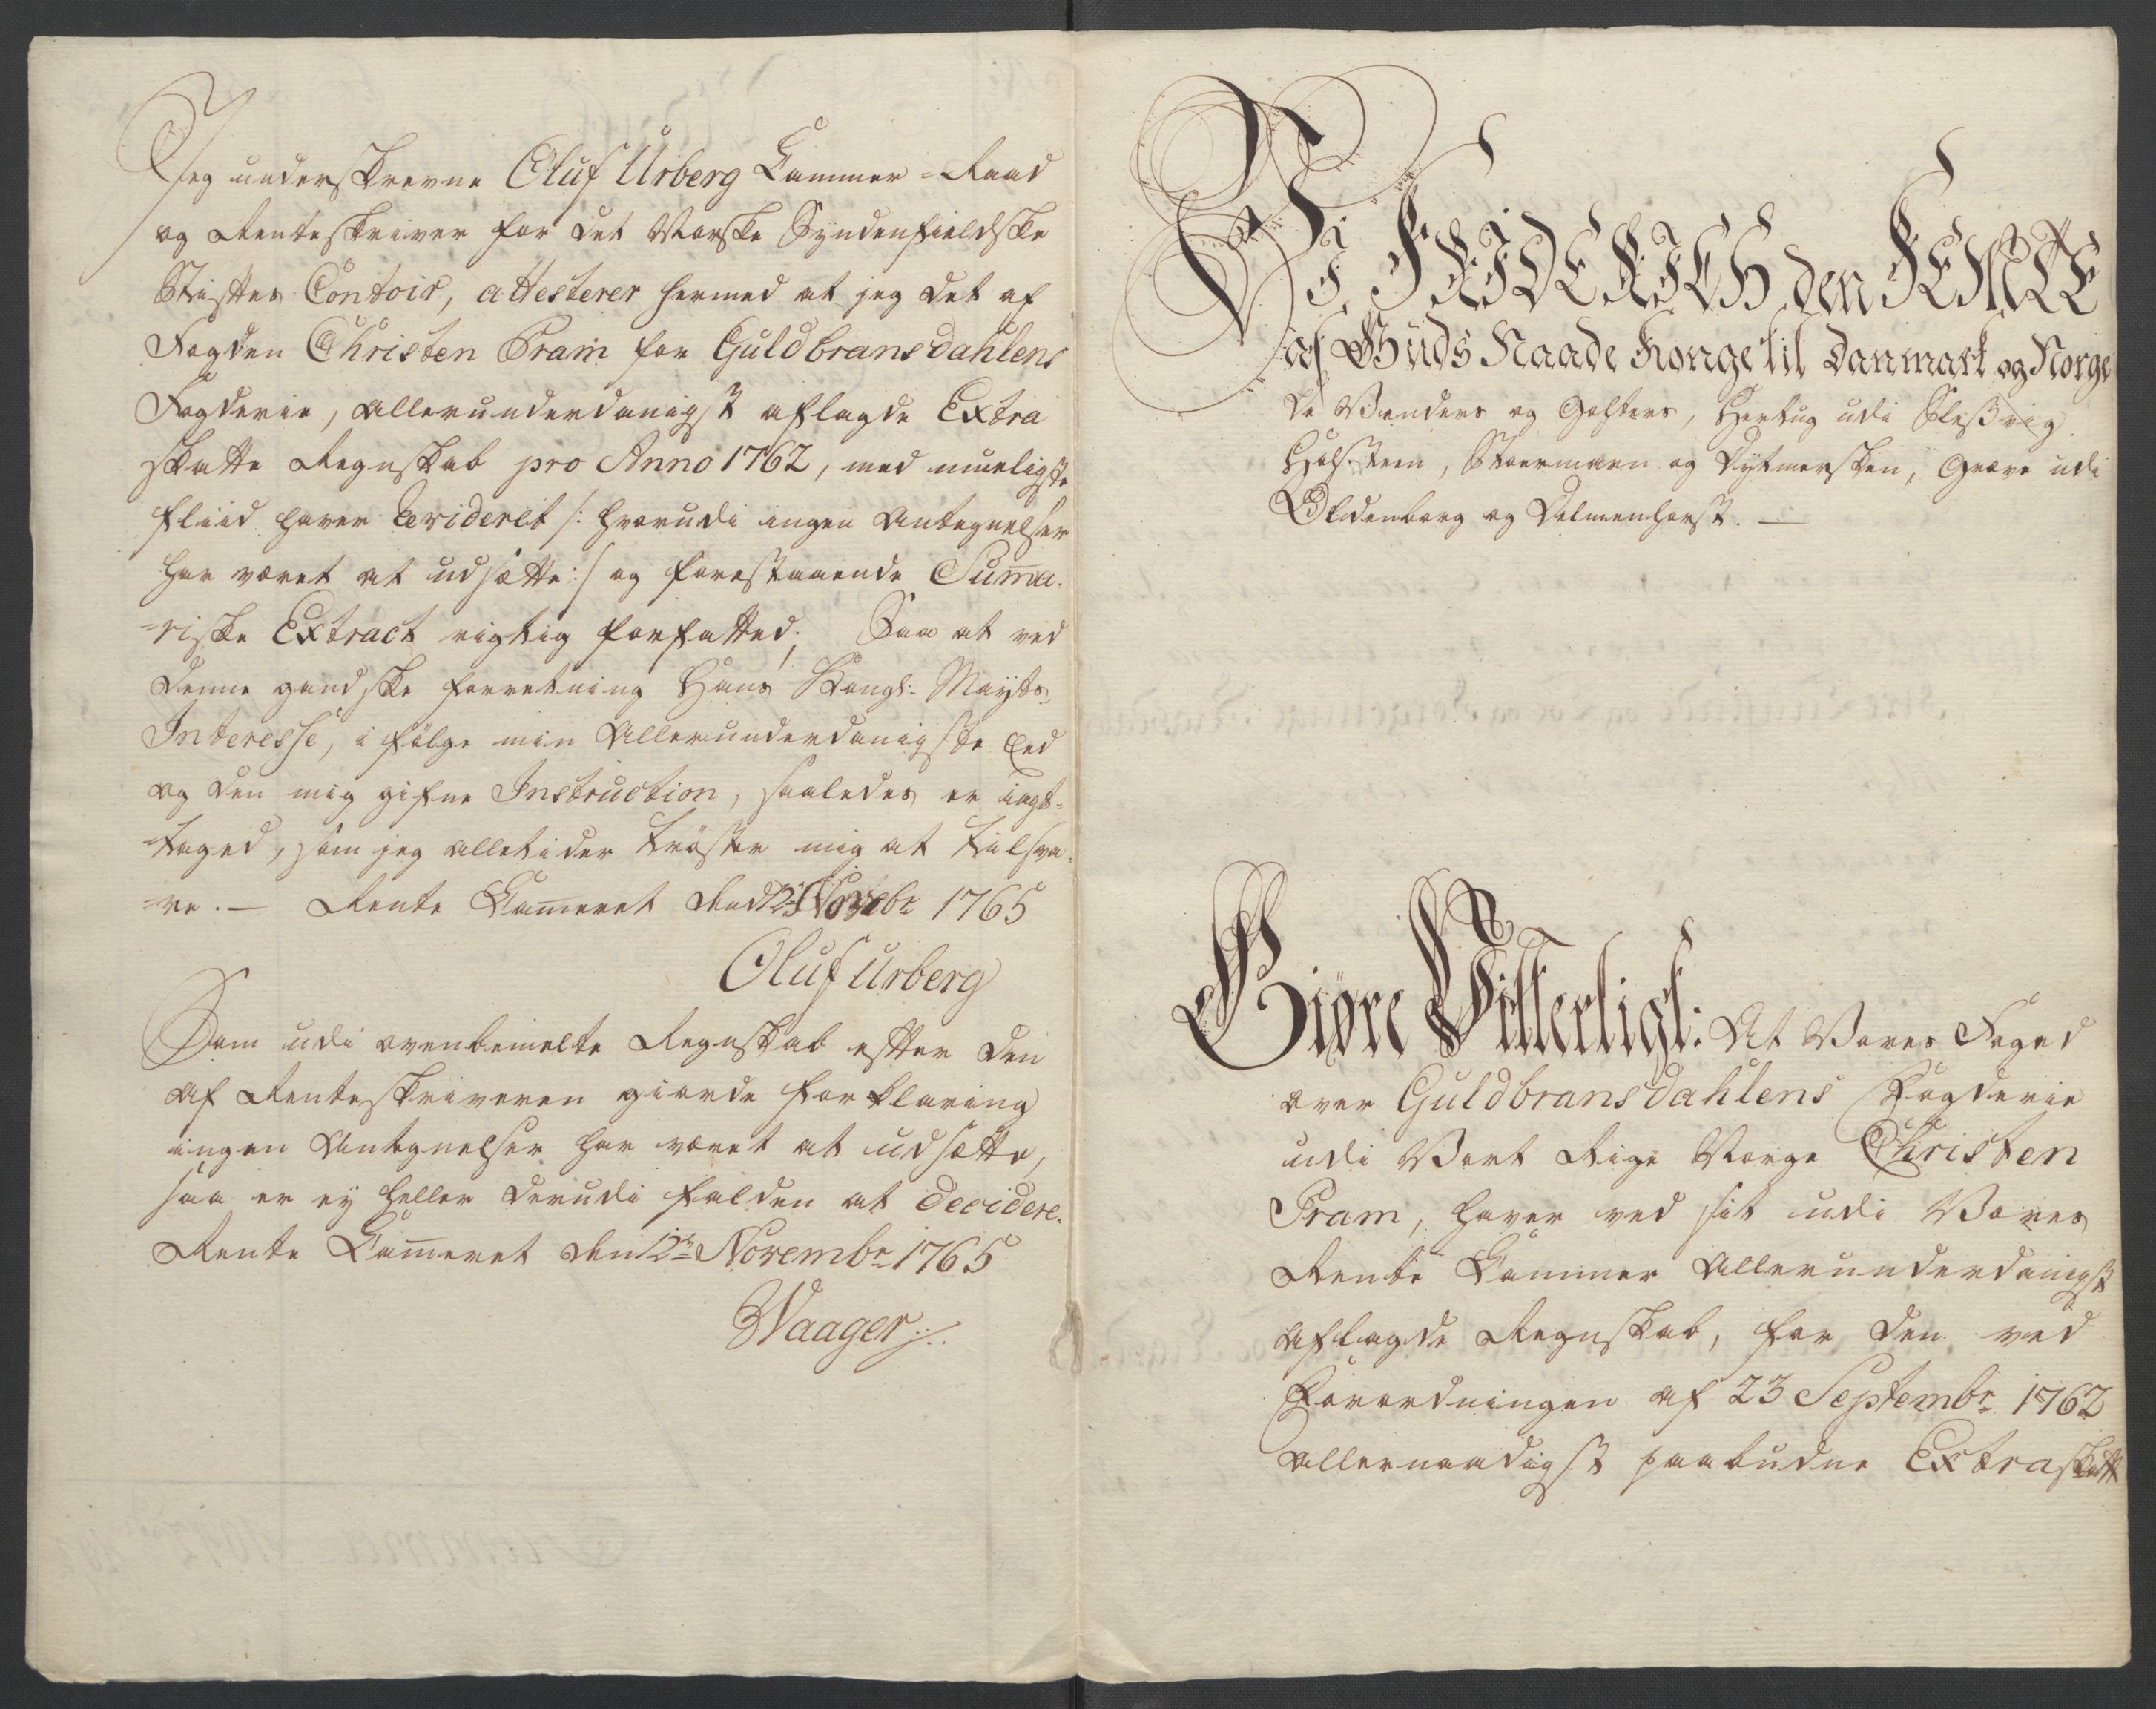 Jeg underskrevne Oluf Urberg Cammer-Raad
og Renteskriver for det Norske Syndenfieldske
Stiftes Contoir, attesterer hermed at jeg det af
Fogden Christen Pram for Guldbransdahlens
Fogderie, allerunderdanigst aflagde Extra
skatte Regnskab pro Anno 1762, med mueligste
Fliid haver Revideret /: hvorudi ingen Antegnelser
har været at udsætte :/ og forestaaende Summa-
-riske Extract rigtig forfatted; Saa at ved
denne gandske forretning Hans Kongl: Mayts
Interesse, i følge min Allerunderdanigste Eed
og den mig gifne Instruction, saaledes er iagt-
-taged, som jeg alletider trøster mig at tilsva-
-re. — Rente Cammeret den 12 Novebr 1765
Oluf Urberg
Som udi ovenbemelte Regnskab efter den
af Renteskriveren giorde forklaring
ingen Antegnelser har været at udsætte,
saa er ey heller derudi falden at decidere.
Rente Cammeret den 12te Novembr 1765
Waager
Vi FRIDERICH den FEMTE
af Guds Naade Konge til Danmark og Norge
de Venders og Gothers, Hertug udi Slesvig
Holsteen, Stoermarn og Dytmersken, Greve udi
Oldenborg og Delmenhorst. —
Giøre Vitterligt: At Vores Foged
over Guldbransdahlens Fogderie
udi Vort Rige Norge Christen
Pram, haver ved sit udi Vores
Rente Cammer Allerunderdanigst
aflagde Regnskab, for den ved
Forordningen af 23 Septembr 1762
allernaadigst paabudne Extraskatt